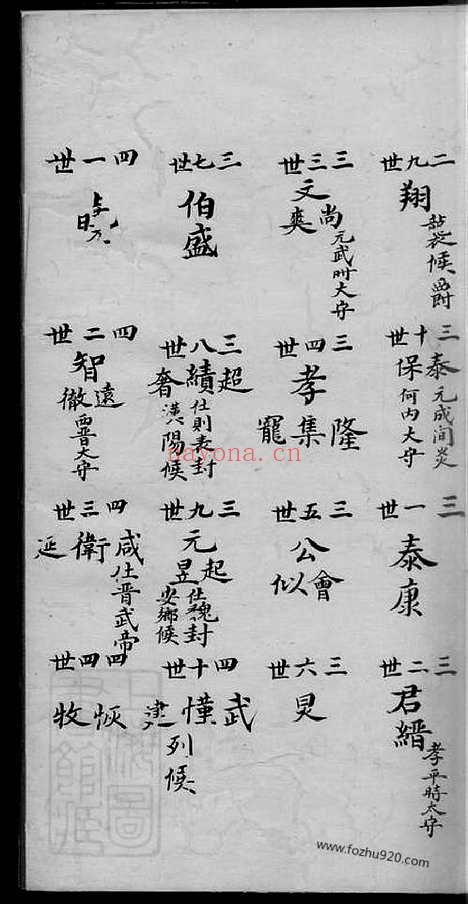 二九世
翔
襲侯爵
三十世
泰
保
元成间炎
何内大守
三一世
泰康
三二世
君縉
孝平時太守
三三世
尚
文奭
元武时大守
三四世
隆
孝集
寵
三五世
會
公
似
三六世
炅
三七世
伯盛
三八世
超
績
奢
仕則表封
漢陽候
三九世
起
元
昱
仕魏封
安鄉候
四十世
武
慬
建
列候
四一世
四二世
遠
智
徹
西晋大守
四三世
咸
衛
延
仕晋武帝
四四世
恢
牧
nayona.cn
www.fozhu920.com